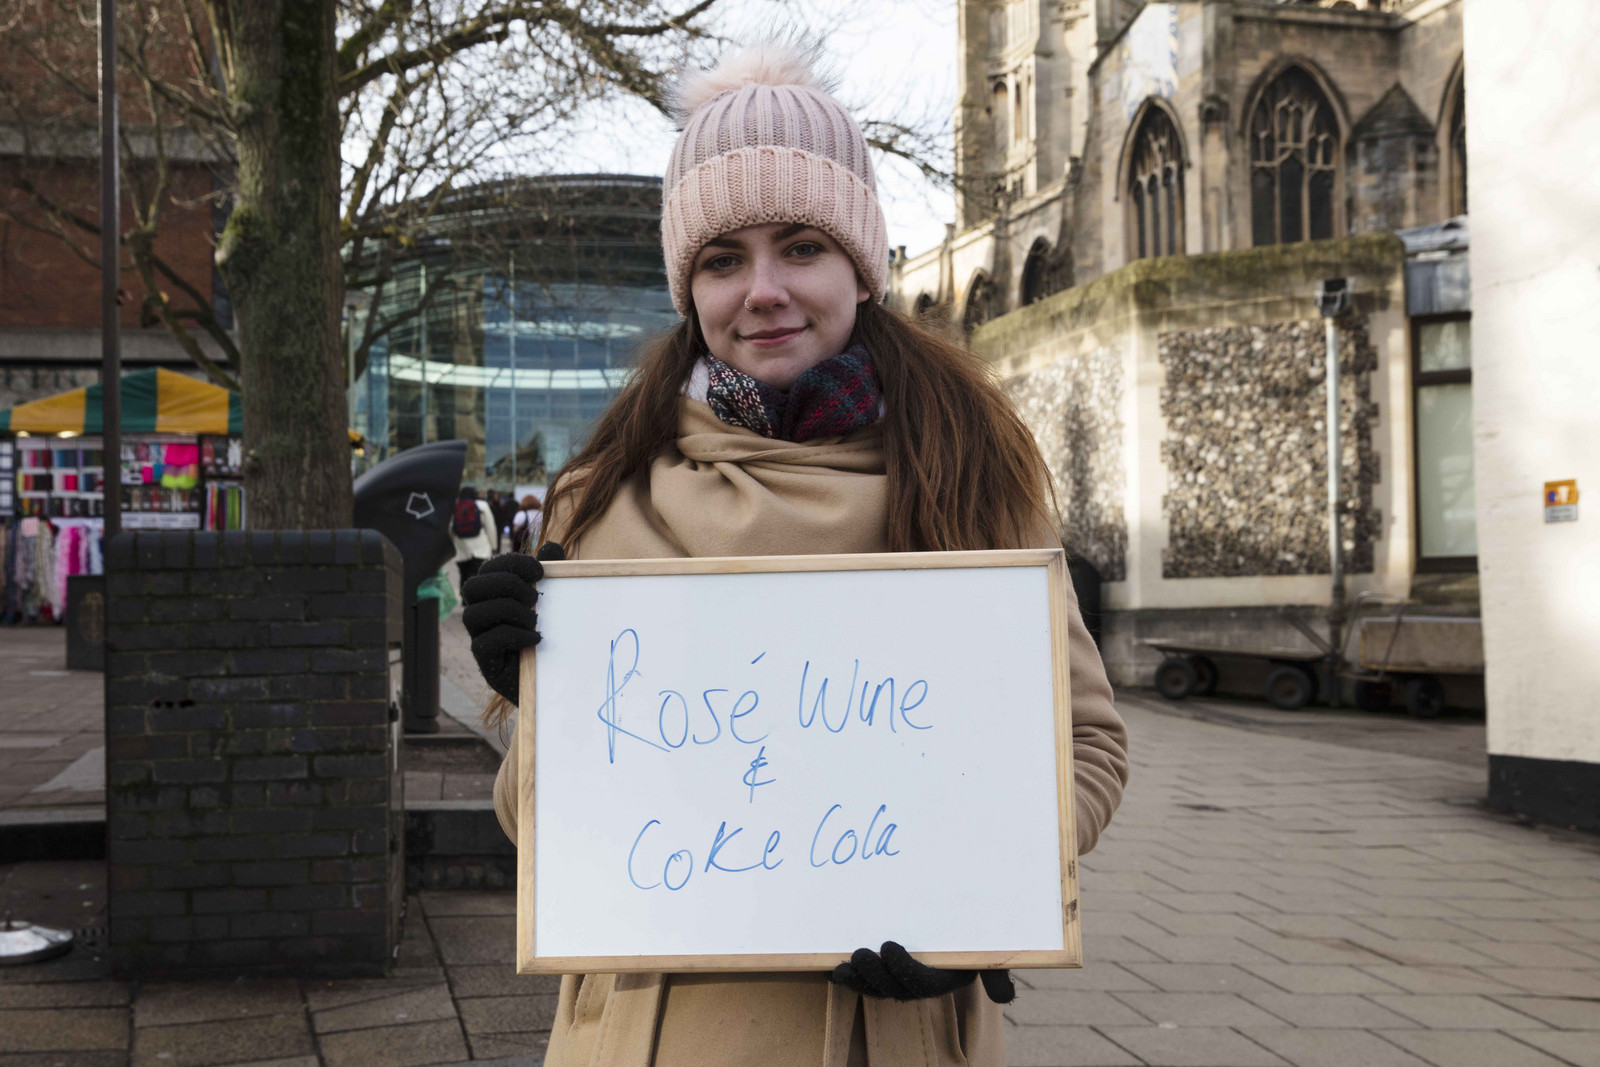 Rosé Wine
&
Coke Cola